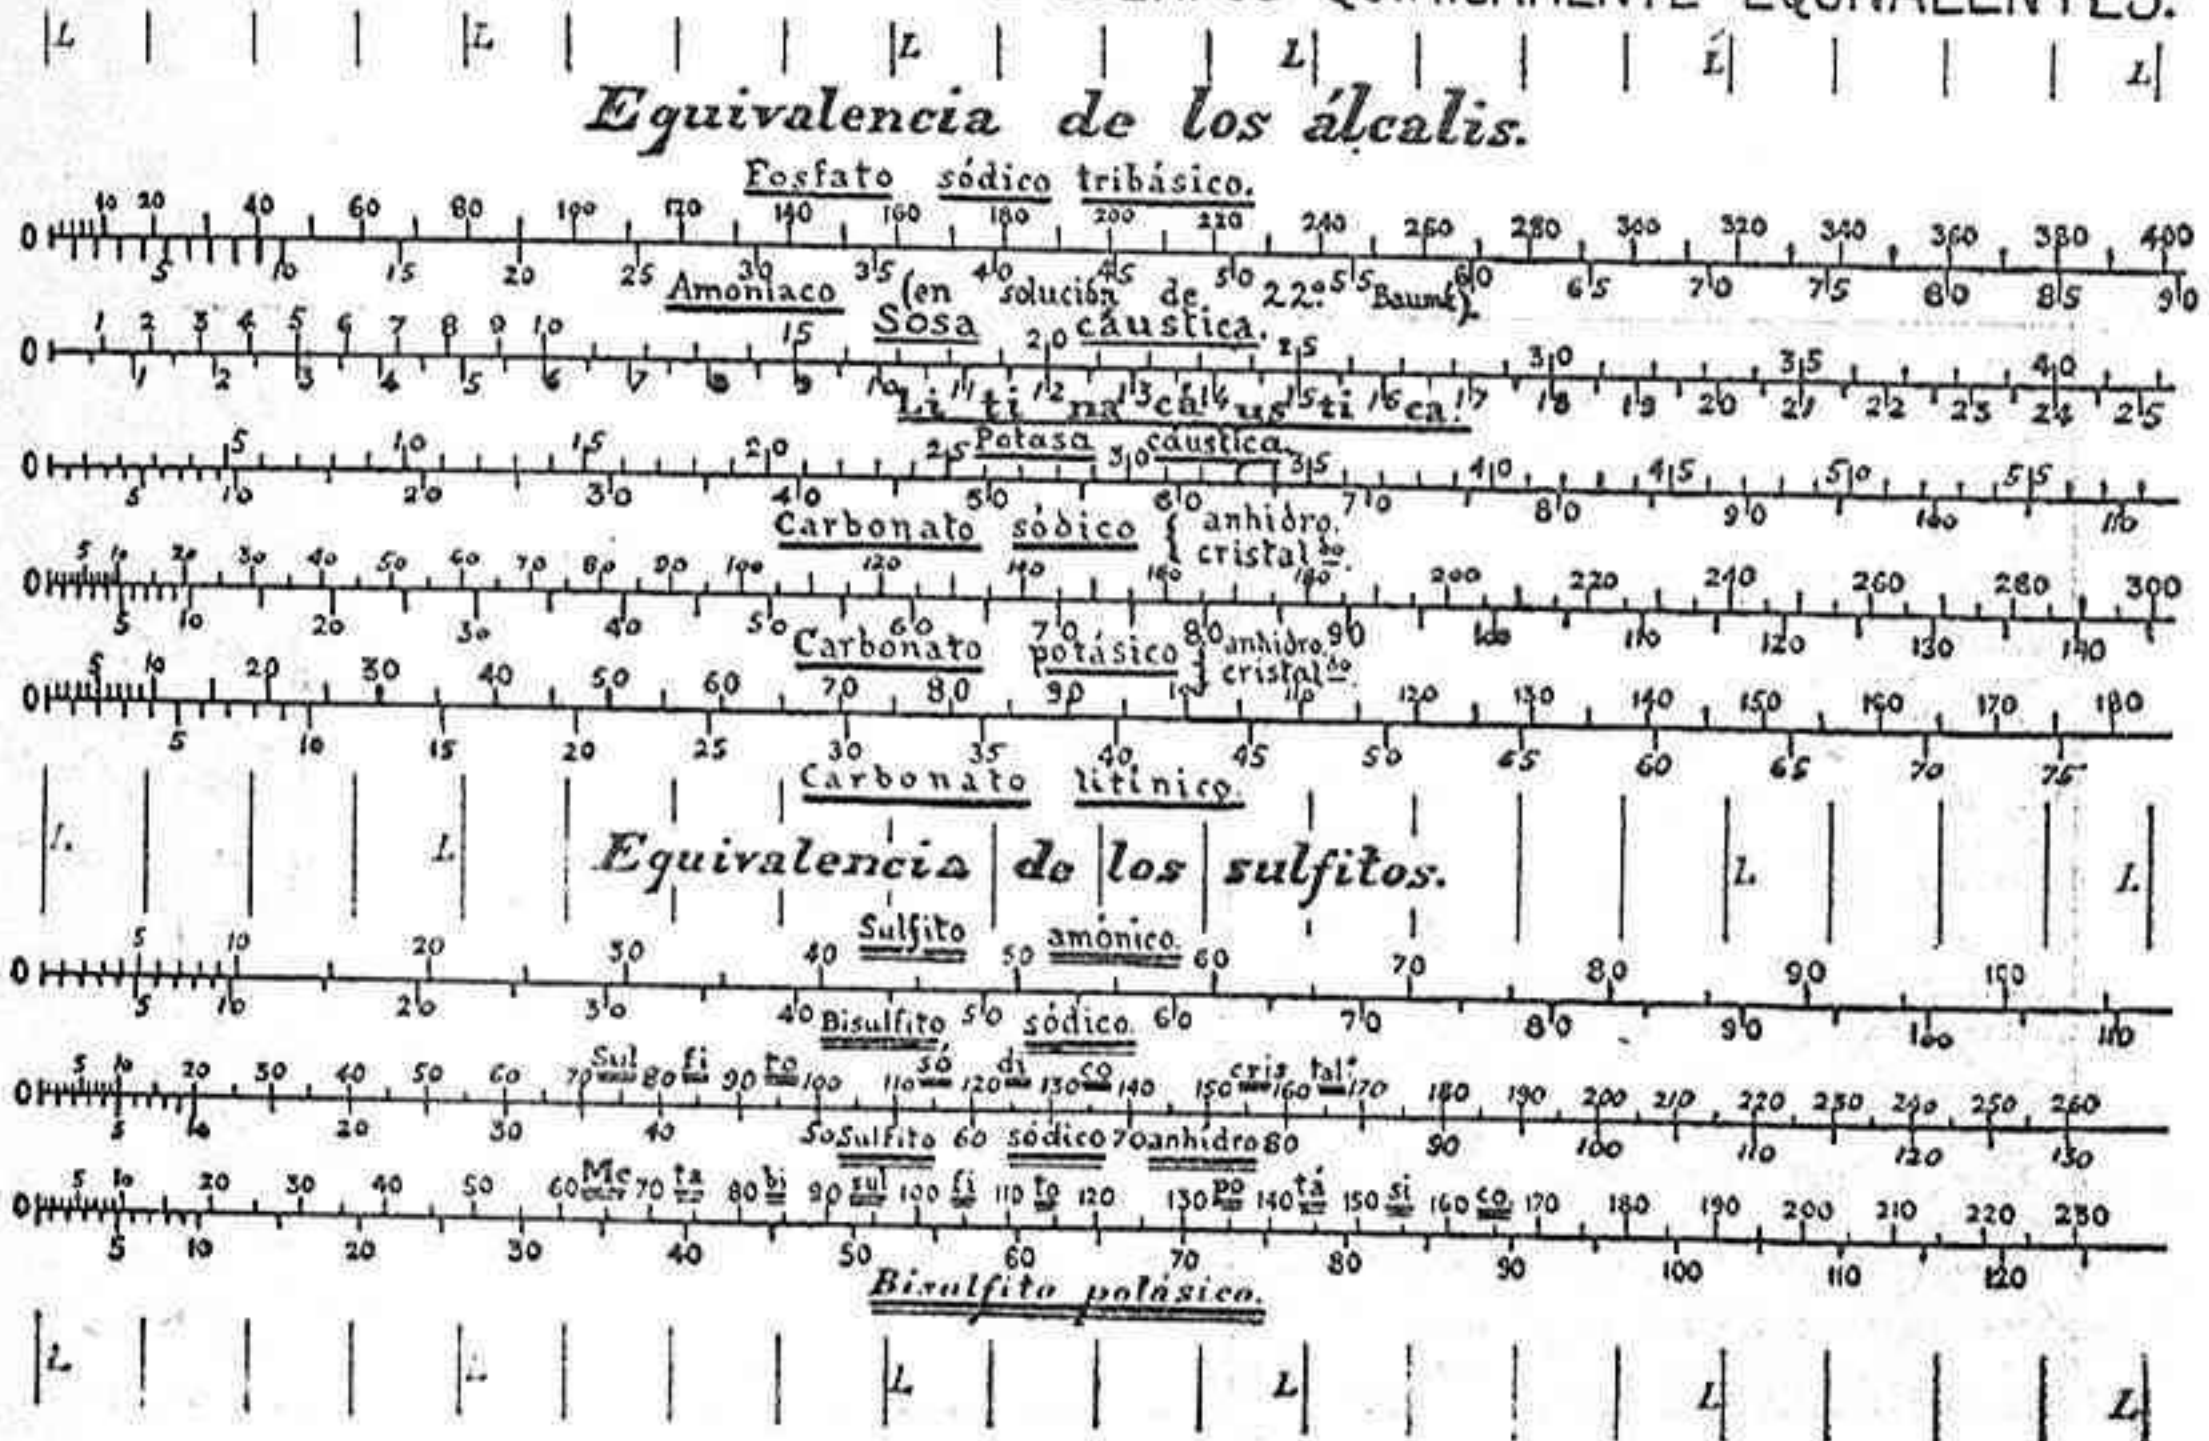 QUÍMICAMENTE EQUIVALENTES.
L L L L L L
Equivalencia de los álcalis.
Fosfato sódico tribásico.
10 20 40 60 80 100 120 140 160 180 200 220 240 260 280 300 320 340 360 380 400
0
5 10 15 20 25 30 35 40 45 50 55 60 65 70 75 80 85 90
Amoníaco (en solución de 22º Baumé).
Sosa cáustica.
1 2 3 4 5 6 7 8 9 10 15 20 25 30 35 40
0
1 2 3 4 5 6 7 8 9 10 11 12 13 14 15 16 17 18 19 20 21 22 23 24 25
Li ti na cá us ti ca.
Potasa cáustica.
5 10 15 20 25 30 35 40 45 50 55
0
5 10 20 30 40 50 60 70 80 90 100 110
Carbonato sódico { anhidro.
cristaldo.
5 10 20 30 40 50 60 70 80 90 100 120 140 160 180 200 220 240 260 280 300
0
5 10 20 30 40 50 60 70 80 90 100 110 120 130 140
Carbonato potásico } anhidro.
cristaldo.
5 10 20 30 40 50 60 70 80 90 110 120 130 140 150 160 170 180
0
5 10 15 20 25 30 35 40 45 50 65 60 65 70 75
Carbonato litínico.
L L L L
Equivalencia de los sulfitos.
Sulfito amónico.
5 10 20 30 40 50 60 70 80 90 100
0
5 10 20 30 40 50 60 70 80 90 100 110
Bisulfito sódico.
Sul fi to só di co cris tal.º
5 10 20 30 40 50 60 70 80 90 100 110 120 130 140 150 160 170 180 190 200 210 220 230 240 250 260
0
5 10 20 30 40 50 60 70 80 90 100 110 120 130
Sulfito sódico anhidro
Me ta bi sul fi to po tá si co.
5 10 20 30 40 50 60 70 80 90 100 110 120 130 140 150 160 170 180 190 200 210 220 230
0
5 10 20 30 40 50 60 70 80 90 100 110 120
Bisulfito potásico.
L L L L L L